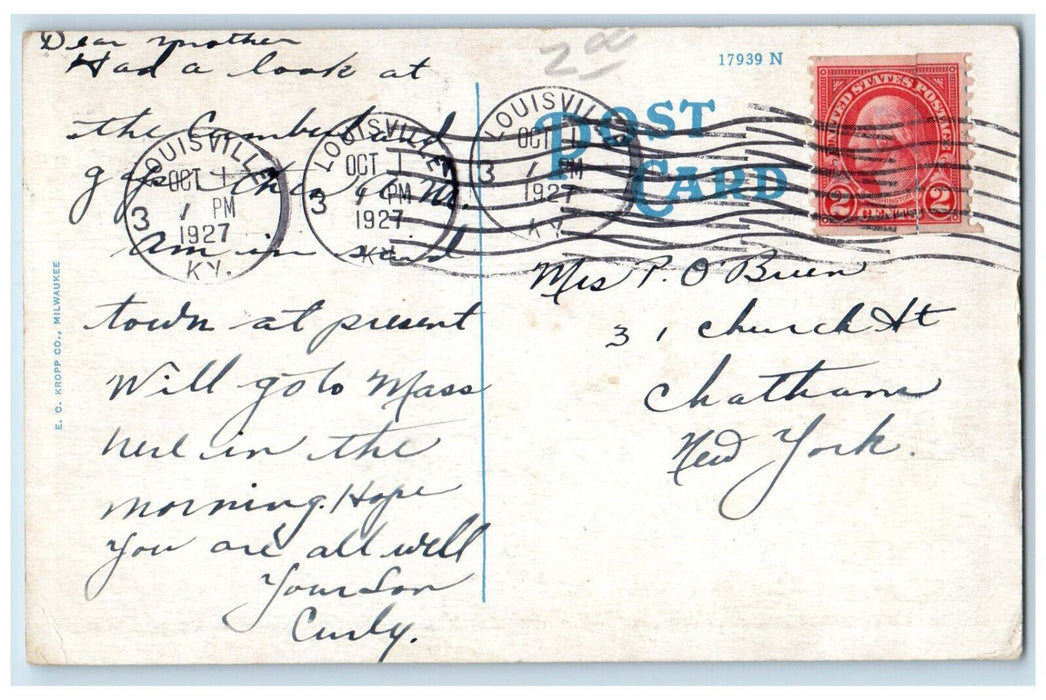 Dear Mother
Had a look at
the Cumberland
gaps this A.M.
Am in
town at present
Will go to Mass
here in the
morning. Hope
you are all well
Your Son
Curly.
E. C. KROPP CO., MILWAUKEE
LOUISVILLE
OCT 1
1 PM
1927
KY.
3
LOUISVILLE
OCT 1
1 PM
1927
KY.
3
LOUISVILLE
OCT 1
1 PM
1927
KY.
3
2.00
17939 N
POST
CARD
UNITED STATES POSTAGE
2 CENTS 2
Mrs P. O'Brien
31 Church St
Chatham
New York.